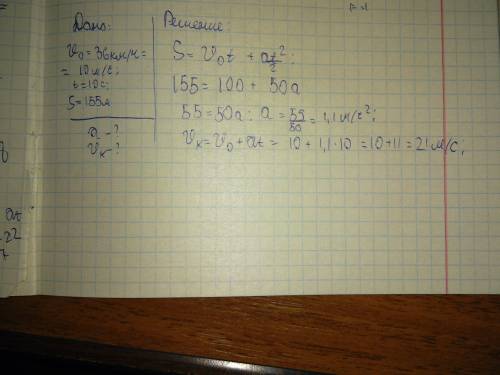 Дано:
V₀ = 36 км/ч =
= 10 м/с;
t = 10 с;
S = 155 м
a - ?
Vк - ?
Решение:
S = V₀t + at²/2;
155 = 100 + 50a
55 = 50a; a = 55/50 = 1,1 м/с²;
Vк = V₀ + at = 10 + 1,1·10 = 10 + 11 = 21 м/с;
at
-22